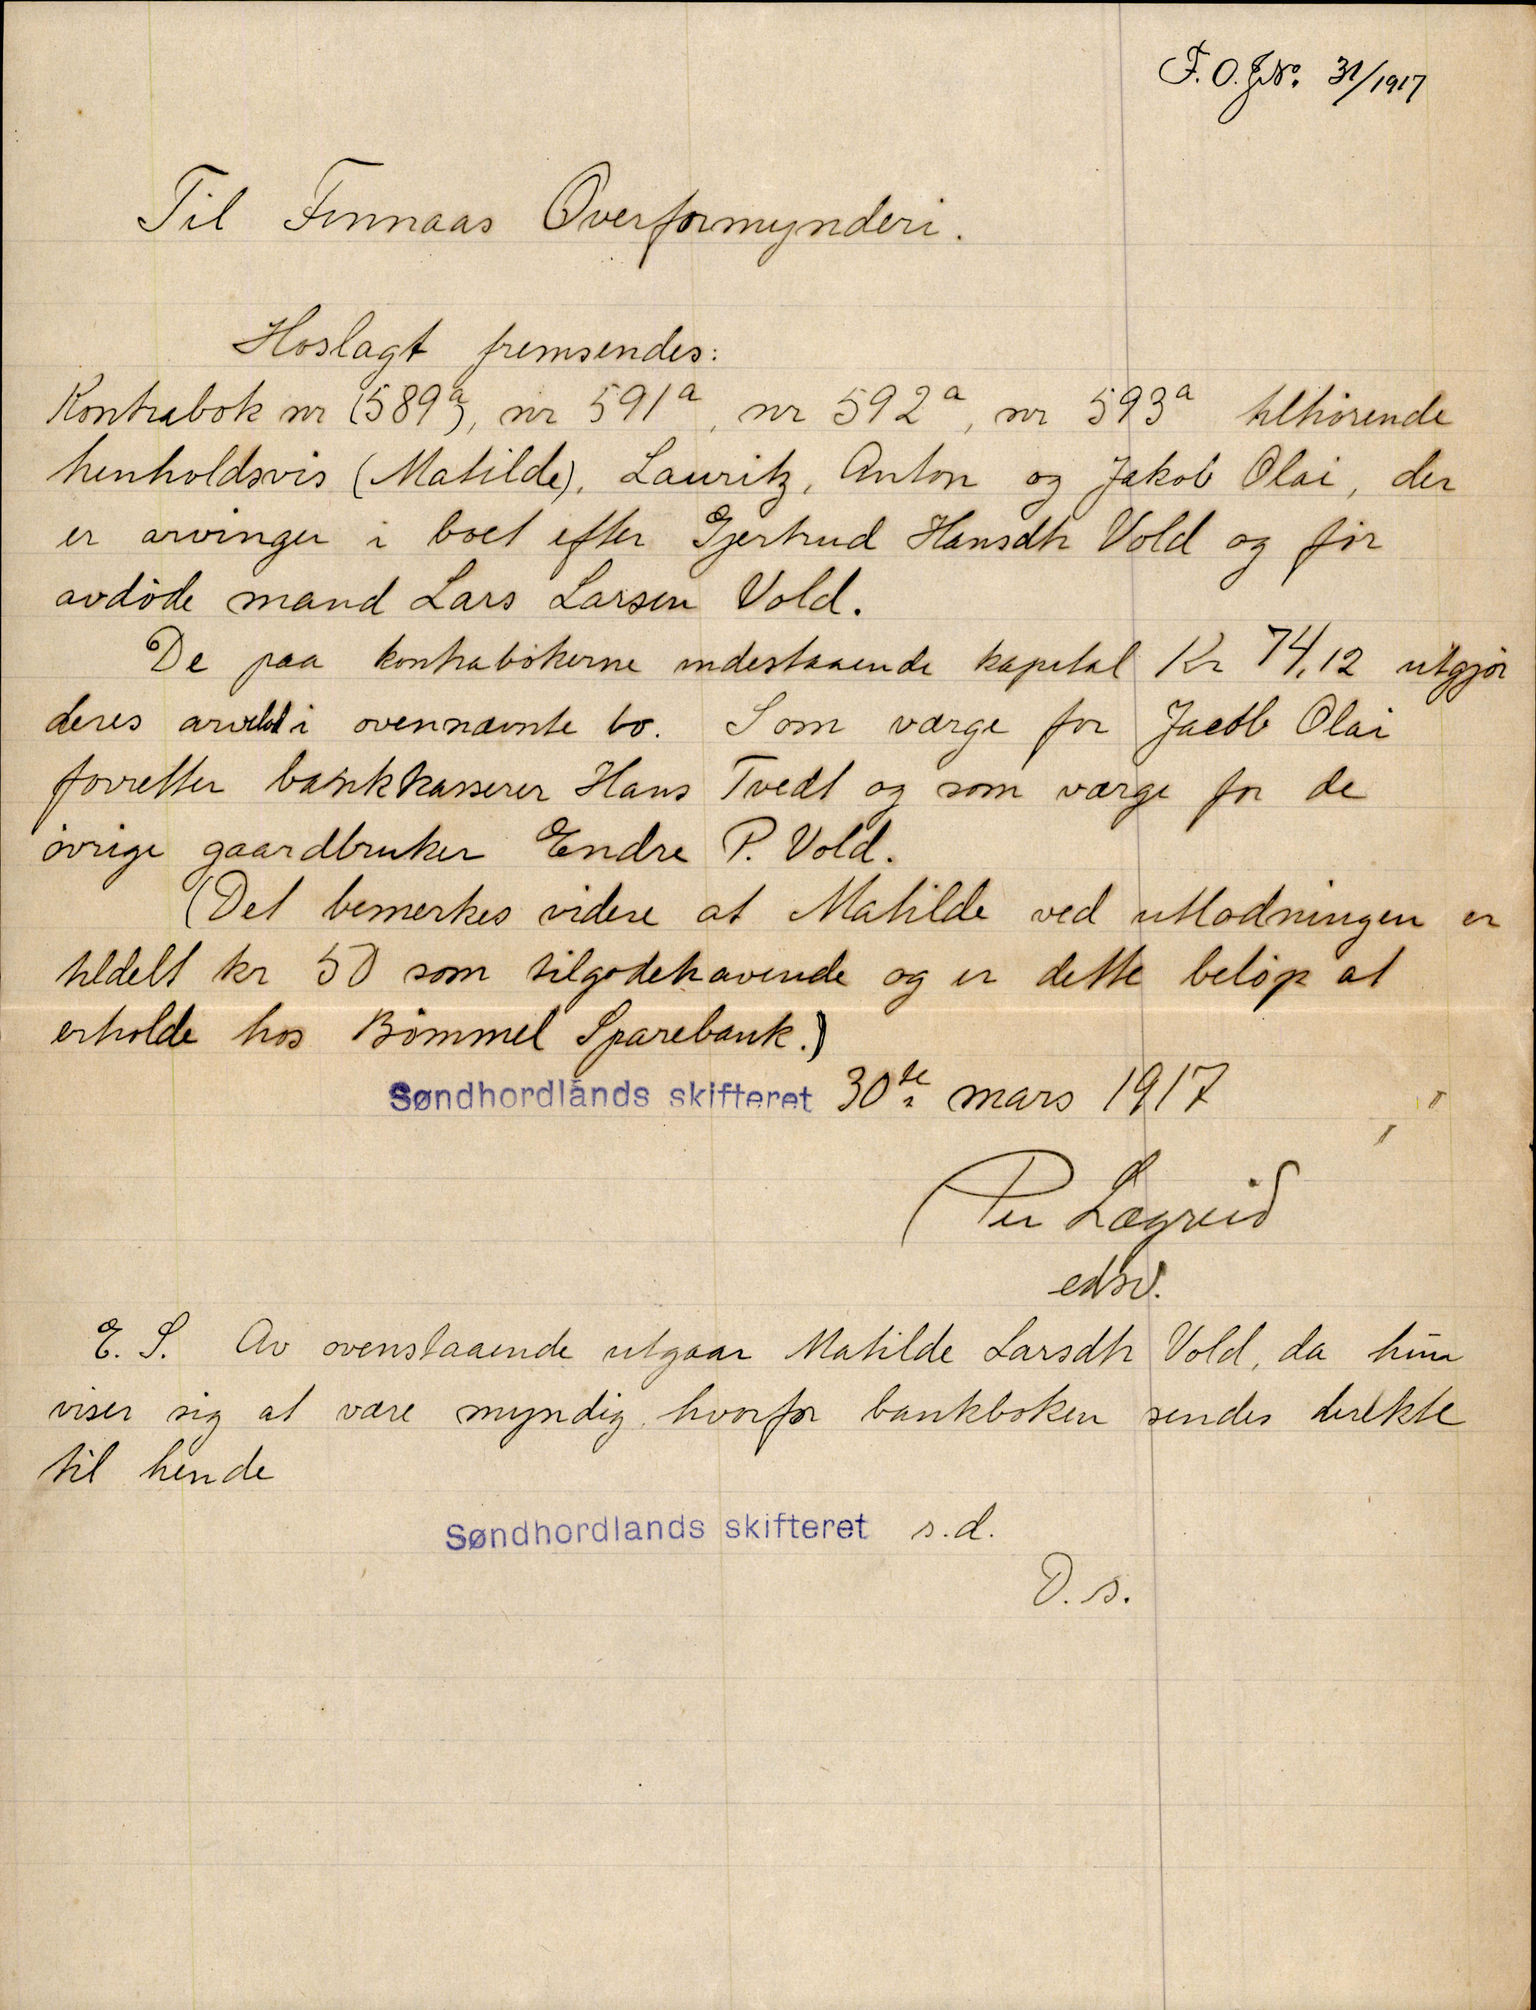 F. O. J No. 31/1917
Til Finnaas Overformynderi.
Hoslagt fremsendes:
Kontrabok nr (589a), nr 591a, nr 592a, nr 593a tilhörende
henholdsvis (Matilde), Lauritz, Anton og Jakob Olai, der
er arvinger i boet efter Gjertrud Hansdtr Vold og för
avdöde mand Lars Larsen Vold.
De paa kontrabökerne indestaaende kapital Kr 74,12 utgjör
deres arvelod i ovennævnte bo. Som værge for Jacob Olai
forretter bankkasserer Hans Tvedt og som værge for de
övrige gaardbruker Endre P. Vold.
(Det bemerkes videre at Matilde ved utlodningen er
tildelt kr 50 som tilgodehavende og er dette belöp at
erholde hos Bömmel Sparebank.)
Søndhordlands skifteret 30te mars 1917
Per Lægreid
edsv.
E. S. Av ovenstaaende utgaar Matilde Larsdtr Vold, da hun
viser sig at være myndig, hvorfor bankboken sendes direkte
til hende
Søndhordlands skifteret s.d.
D. s.